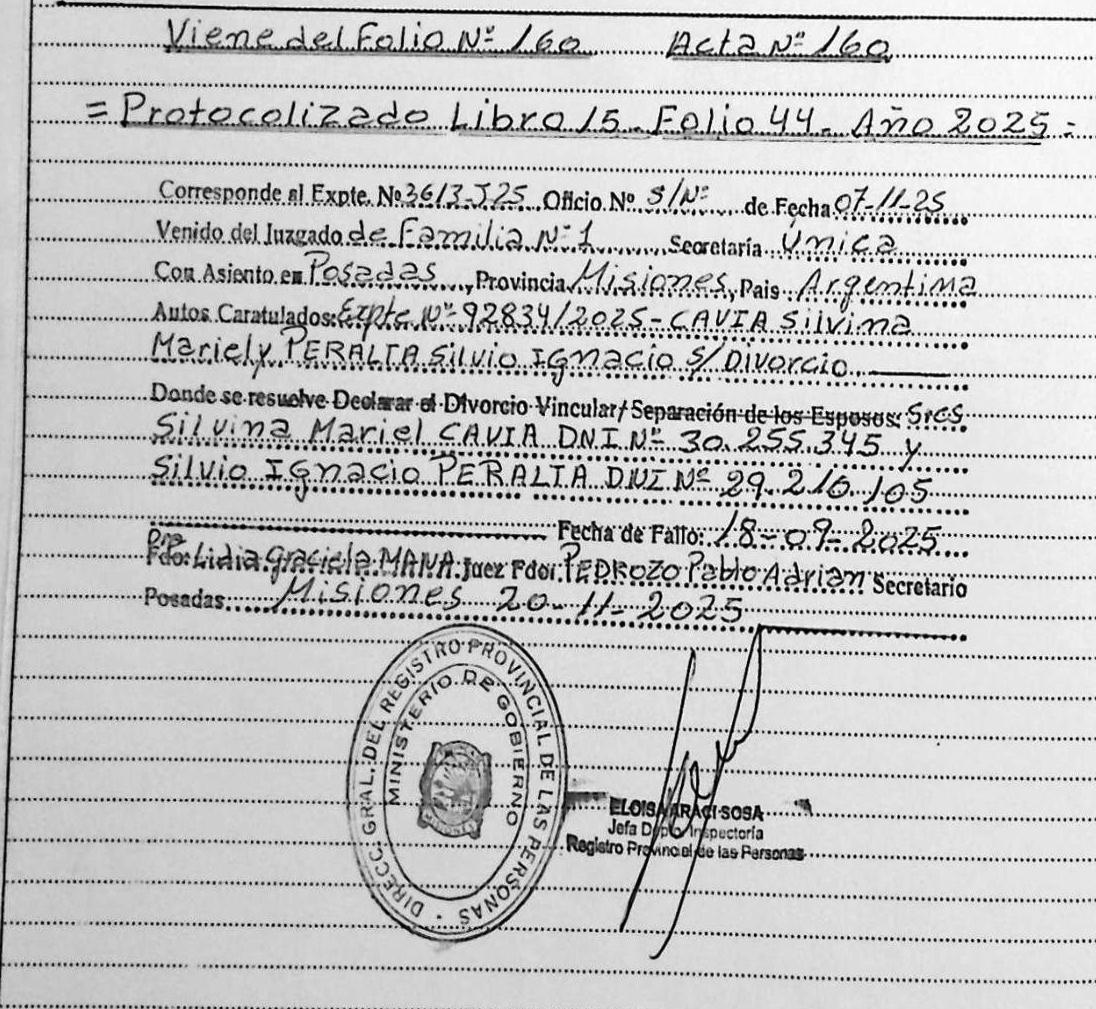 Viene del Folio Nº 160 Acta Nº 160
= Protocolizado Libro 15 - Folio 44 - Año 2025 =
Corresponde al Expte. Nº 3613-J25 Oficio Nº S/Nº de Fecha 07-11-25
Venido del Juzgado de Familia Nº 1 Secretaría Unica
Con Asiento en Posadas, Provincia Misiones, Pais Argentina
Autos Caratulados: Expte Nº 92834/2025 - CAVIA Silvina
Mariel y PERALTA Silvio Ignacio S/ Divorcio
Donde se resuelve Declarar el Divorcio Vincular/ Separación de los Esposos: Sres
Silvina Mariel CAVIA DNI Nº 30.255.345 y
Silvio Ignacio PERALTA DNI Nº 29.210.105
Fecha de Fallo: 18-09-2025
Dra
Fdo: Lidia Graciela MANA Juez Fdo: PEDROZO Pablo Adrian Secretario
Posadas Misiones 20-11-2025
DIRECC. GRAL. DEL REGISTRO PROVINCIAL DE LAS PERSONAS
MINISTERIO DE GOBIERNO
MISIONES
ELOISA ARACI SOSA
Jefa Dpto Inspectoría
Registro Provincial de las Personas